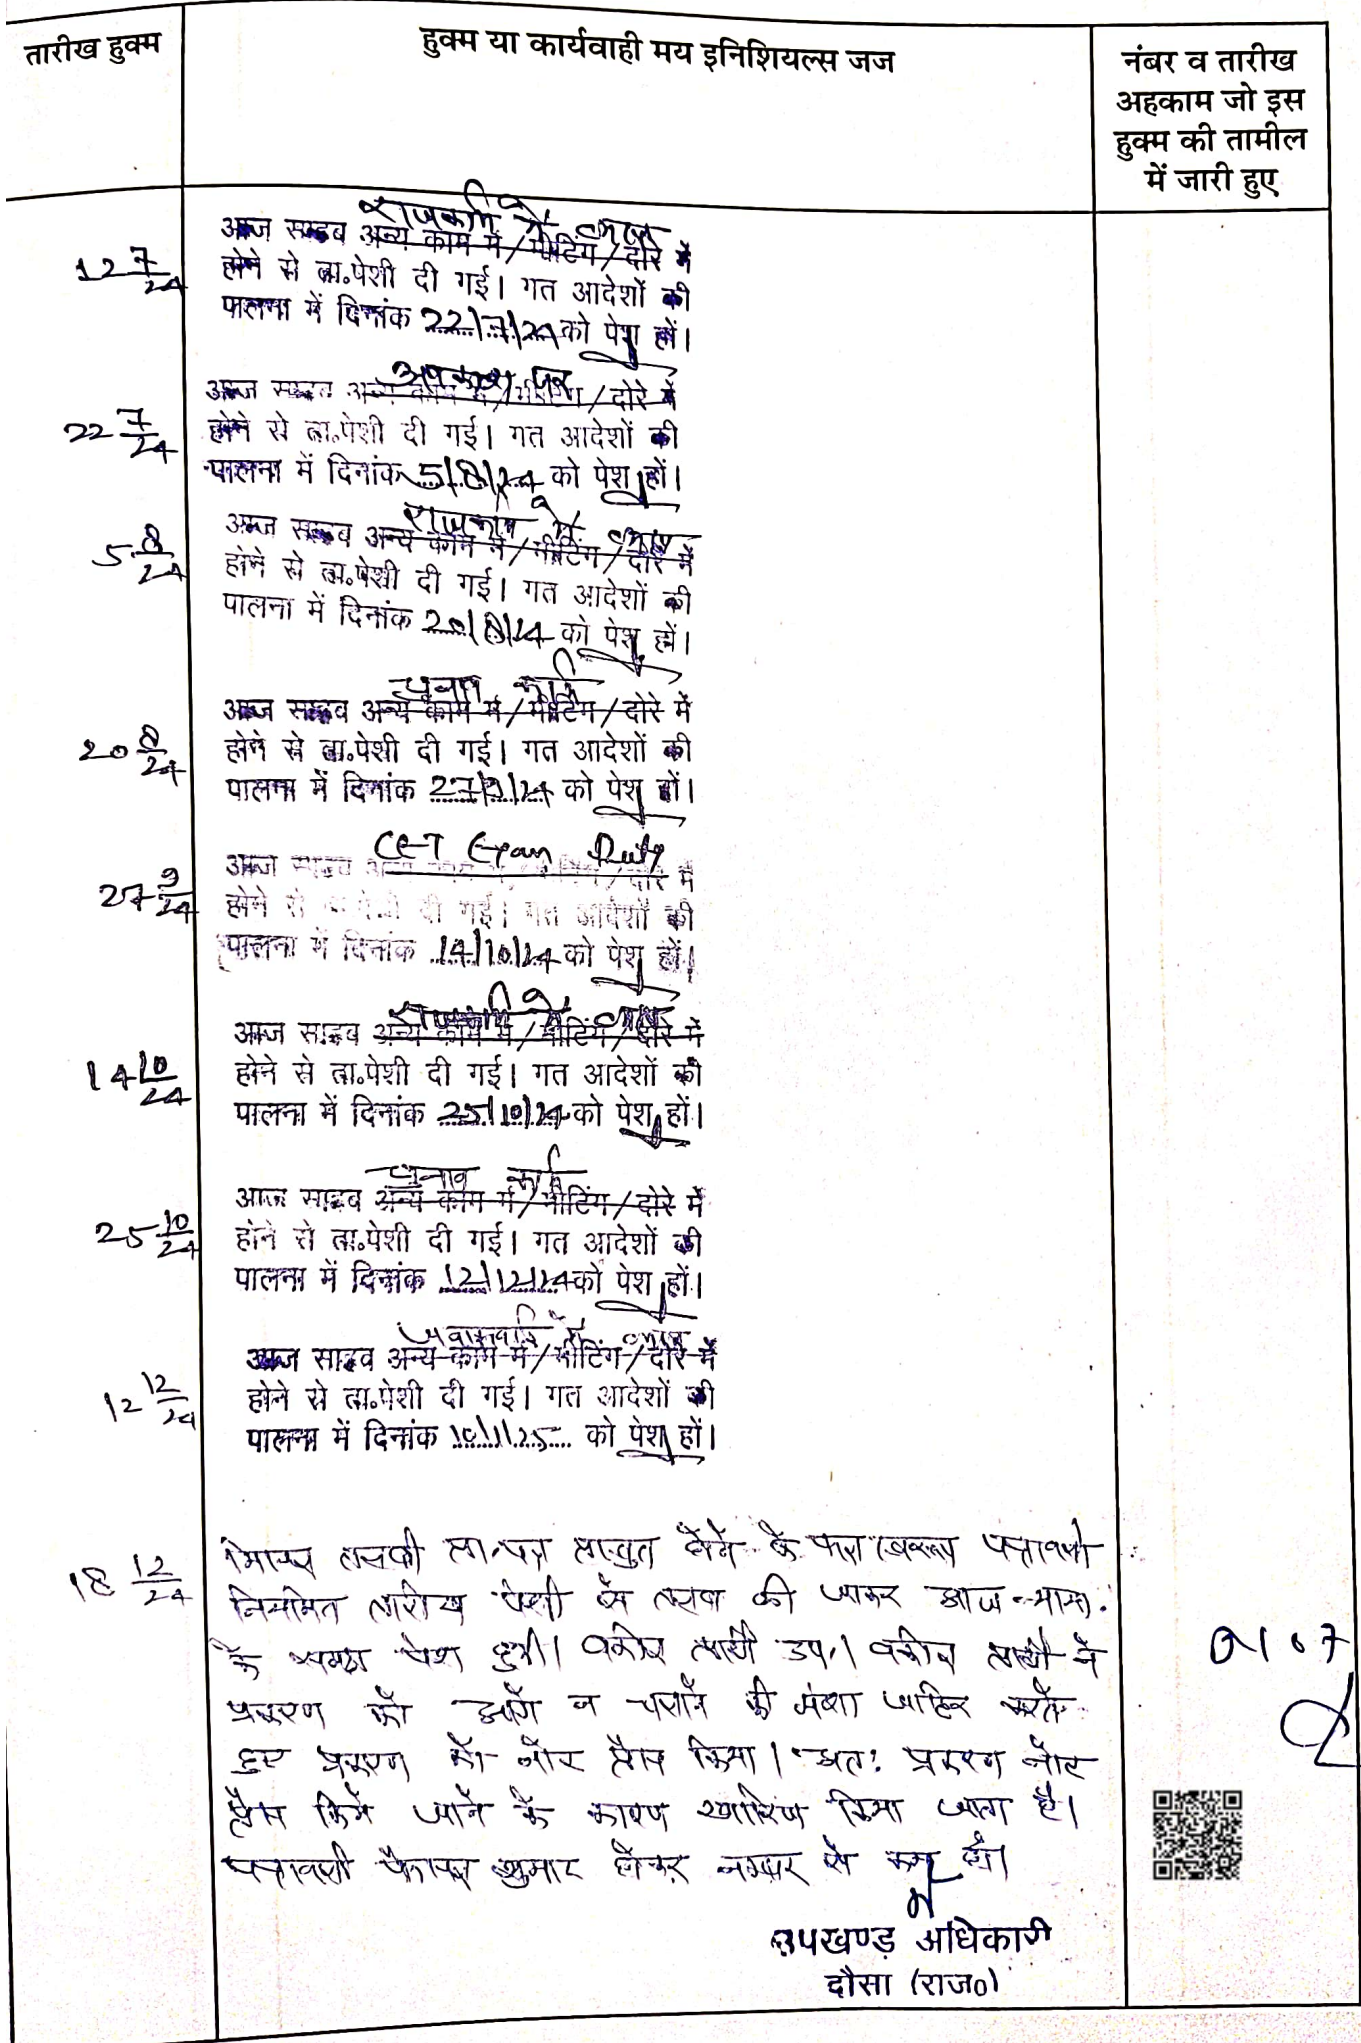 तारीख हुक्म
हुक्म या कार्यवाही मय इनिशियल्स जज
नंबर व तारीख
अहकाम जो इस
हुक्म की तामील
में जारी हुए
राजकार्य में व्यस्त
12 7/24
आज साहब अन्य काम में/मीटिंग/दोरे में
होने से ता.पेशी दी गई। गत आदेशों की
पालना में दिनांक 22/7/24 को पेश हों।
अवकाश पर
22 7/24
आज साहब अन्य काम में/मीटिंग/दोरे में
होने से ता.पेशी दी गई। गत आदेशों की
पालना में दिनांक 5/8/24 को पेश हों।
राजकार्य में व्यस्त
5 8/24
आज साहब अन्य काम में/मीटिंग/दोरे में
होने से ता.पेशी दी गई। गत आदेशों की
पालना में दिनांक 20/8/24 को पेश हों।
चुनाव कार्य
20 8/24
आज साहब अन्य काम में/मीटिंग/दोरे में
होने से ता.पेशी दी गई। गत आदेशों की
पालना में दिनांक 27/9/24 को पेश हों।
CET Exam Duty
27 9/24
आज साहब अन्य काम में/मीटिंग/दोरे में
होने से ता.पेशी दी गई। गत आदेशों की
पालना में दिनांक 14/10/24 को पेश हों।
राजकार्य में व्यस्त
14 10/24
आज साहब अन्य काम में/मीटिंग/दोरे में
होने से ता.पेशी दी गई। गत आदेशों की
पालना में दिनांक 25/10/24 को पेश हों।
चुनाव कार्य
25 10/24
आज साहब अन्य काम में/मीटिंग/दोरे में
होने से ता.पेशी दी गई। गत आदेशों की
पालना में दिनांक 12/12/24 को पेश हों।
में व्यस्त
12 12/24
आज साहब अन्य काम में/मीटिंग/दोरे में
होने से ता.पेशी दी गई। गत आदेशों की
पालना में दिनांक 10/1/25 को पेश हों।
18 12/24
तलबी प्रस्तुत होने के फलस्वरूप पत्रावली
नियमित तारीख पेशी से तलब की जाकर आज न्याया.
के समक्ष पेश हुयी। वकील प्रार्थी उप.। वकील प्रार्थी ने
प्रकरण को आगे न चलाने की मंशा जाहिर करते
हुए प्रकरण को नोट प्रैस किया। अतः प्रकरण नोट
प्रैस किये जाने के कारण खारिज किया जाता है।
पत्रावली फैसल शुमार होकर नम्बर से कम हो।
उपखण्ड अधिकारी
दौसा (राज0)